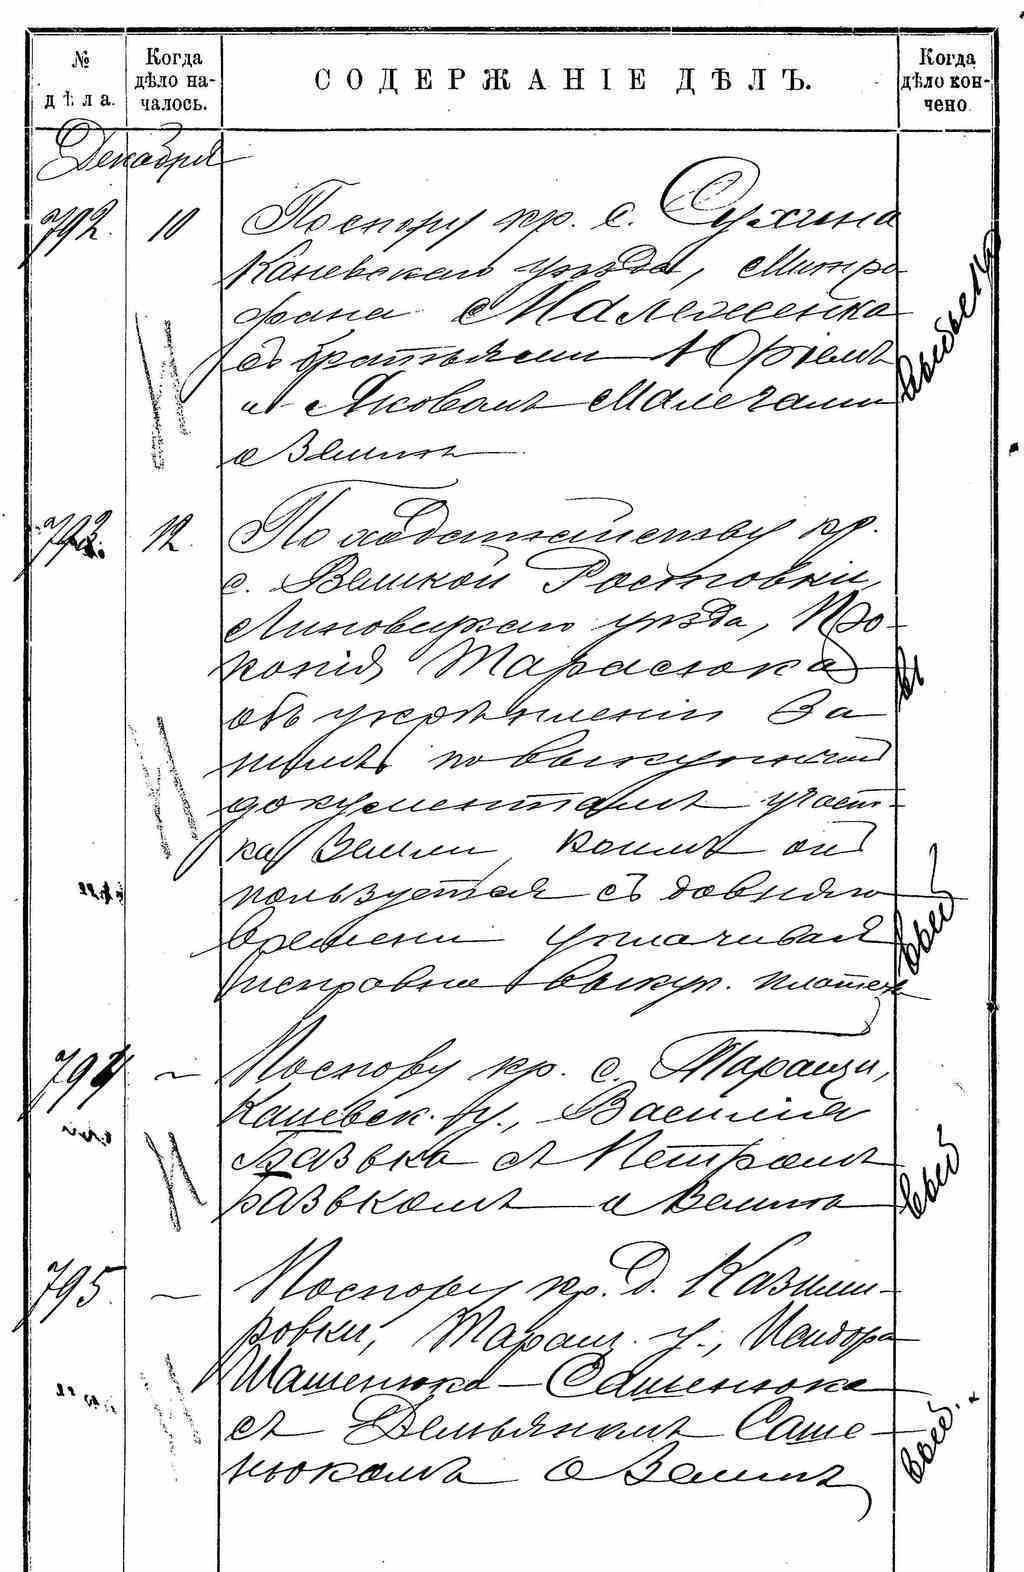 № дѣла.
Когда дѣло началось.
СОДЕРЖАНІЕ ДѢЛЪ.
Когда дѣло кончено
Декабря
792. 10 По спору кр. с. Сухина
Каневскаго уѣзда, Митро-
фана Малеженка
съ братьями Юріемъ
и Яковомъ Малечами
о землѣ
793. 12. По ходатайству кр.
с. Великой Ростовки,
Липовецкаго уѣзда, Про-
копія Тарасюка
объ укрѣпленіи за
нимъ по выкупнымъ
документамъ участ-
ка земли, коимъ онъ
пользуется съ давняго
времени уплачивая
исправно выкуп. платеж
794 — По спору кр. с. Таращи,
Каневск. у., Василія
Базвка съ Петромъ
разькомъ о землѣ
795. — По спору кр. д. Казими-
ровки, Таращ. у., Исидора
Шашенюка-Сашенюка
съ Демьяномъ Саше-
нюкомъ о землѣ